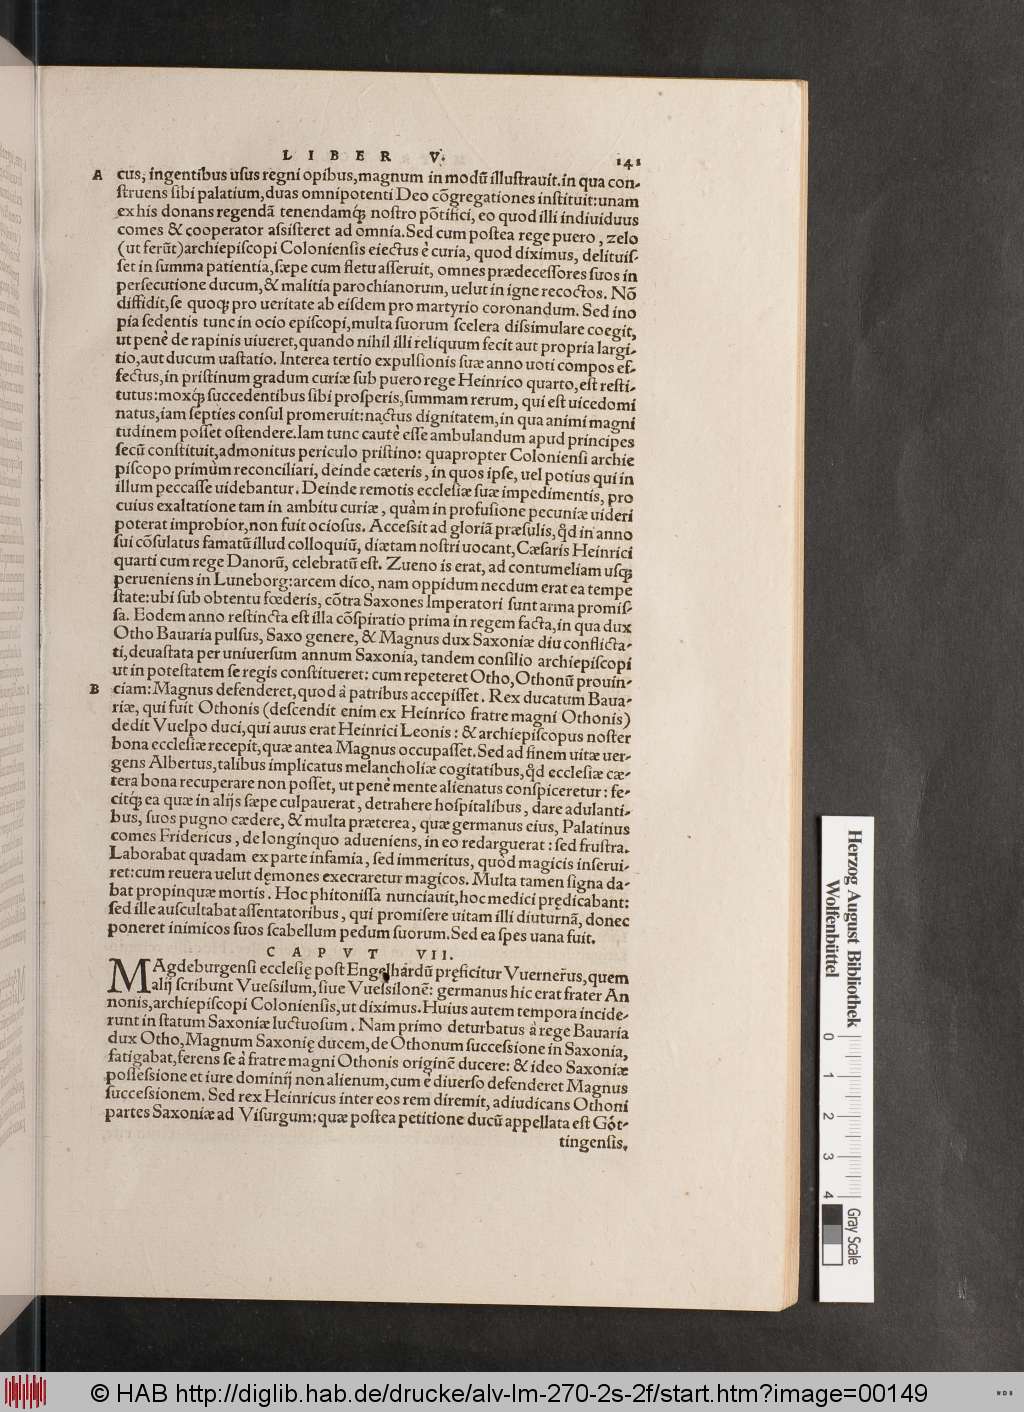 LIBER V. 141
A cus, ingentibus usus regni opibus, magnum in modũ illustrauit. in qua con-
struens sibi palatium, duas omnipotenti Deo cõgregationes instituit: unam
ex his donans regendã tenendamq́; nostro põtifici, eo quod illi indiuiduus
comes & cooperator assisteret ad omnia. Sed cum postea rege puero, zelo
(ut ferũt) archiepiscopi Coloniensis eiectus è curia, quod diximus, delituis-
set in summa patientia, sæpe cum fletu asseruit, omnes prædecessores suos in
persecutione ducum, & malitia parochianorum, uelut in igne recoctos. Nõ
diffidit, se quoq; pro ueritate ab eisdem pro martyrio coronandum. Sed ino
pia sedentis tunc in ocio episcopi, multa suorum scelera dissimulare coegit,
ut penè de rapinis uiueret, quando nihil illi reliquum fecit aut propria largi-
tio, aut ducum uastatio. Interea tertio expulsionis suæ anno uoti compos ef-
fectus, in pristinum gradum curiæ sub puero rege Heinrico quarto, est resti-
tutus: moxq́; succedentibus sibi prosperis, summam rerum, qui est uicedomi
natus, iam septies consul promeruit: nactus dignitatem, in qua animi magni
tudinem posset ostendere. Iam tunc cautè esse ambulandum apud principes
secũ constituit, admonitus periculo pristino: quapropter Coloniensi archie
piscopo primùm reconciliari, deinde cæteris, in quos ipse, uel potius qui in
illum peccasse uidebantur. Deinde remotis ecclesiæ suæ impedimentis, pro
cuius exaltatione tam in ambitu curiæ, quàm in profusione pecuniæ uideri
poterat improbior, non fuit ociosus. Accessit ad gloriã præsulis, q̃d in anno
sui cõsulatus famatũ illud colloquiũ, diætam nostri uocant, Cæsaris Heinrici
quarti cum rege Danorũ, celebratũ est. Zueno is erat, ad contumeliam usq;
perueniens in Luneborg: arcem dico, nam oppidum necdum erat ea tempe
state: ubi sub obtentu fœderis, cõtra Saxones Imperatori sunt arma promis-
sa. Eodem anno restincta est illa cõspiratio prima in regem facta, in qua dux
Otho Bauaria pulsus, Saxo genere, & Magnus dux Saxoniæ diu conflicta-
ti, deuastata per uniuersum annum Saxonia, tandem consilio archiepiscopi
ut in potestatem se regis constitueret: cum repeteret Otho, Othonũ prouin-
B ciam: Magnus defenderet, quod à patribus accepisset. Rex ducatum Baua-
riæ, qui fuit Othonis (descendit enim ex Heinrico fratre magni Othonis)
dedit Vuelpo duci, qui auus erat Heinrici Leonis: & archiepiscopus noster
bona ecclesiæ recepit, quæ antea Magnus occupasset. Sed ad finem uitæ uer-
gens Albertus, talibus implicatus melancholiæ cogitatibus, q̃d ecclesiæ cæ-
tera bona recuperare non posset, ut penè mente alienatus conspiceretur: fe-
citq́; ea quæ in alijs sæpe culpauerat, detrahere hospitalibus, dare adulanti-
bus, suos pugno cædere, & multa præterea, quæ germanus eius, Palatinus
comes Fridericus, de longinquo adueniens, in eo redarguerat: sed frustra.
Laborabat quadam ex parte infamia, sed immeritus, quòd magicis inserui-
ret: cum reuera uelut dęmones execraretur magicos. Multa tamen signa da-
bat propinquæ mortis. Hoc phitonissa nunciauit, hoc medici prędicabant:
sed ille auscultabat assentatoribus, qui promisere uitam illi diuturnã, donec
poneret inimicos suos scabellum pedum suorum. Sed ea spes uana fuit.
CAPVT VII.
MAgdeburgensi ecclesię post Engelhardũ pręficitur Vuernerus, quem
alij scribunt Vuessilum, siue Vuessilonẽ: germanus hic erat frater An
nonis, archiepiscopi Coloniensis, ut diximus. Huius autem tempora incide-
runt in statum Saxoniæ luctuosum. Nam primo deturbatus à rege Bauaria
dux Otho, Magnum Saxonię ducem, de Othonum successione in Saxonia,
fatigabat, ferens se à fratre magni Othonis originẽ ducere: & ideo Saxoniæ
possessione et iure dominij non alienum, cum è diuerso defenderet Magnus
successionem. Sed rex Heinricus inter eos rem diremit, adiudicans Othoni
partes Saxoniæ ad Visurgum: quæ postea petitione ducũ appellata est Göt-
tingensis,
Herzog August Bibliothek
Wolfenbüttel
0 1 2 3 4
Gray Scale
© HAB http://diglib.hab.de/drucke/alv-lm-270-2s-2f/start.htm?image=00149
WDB